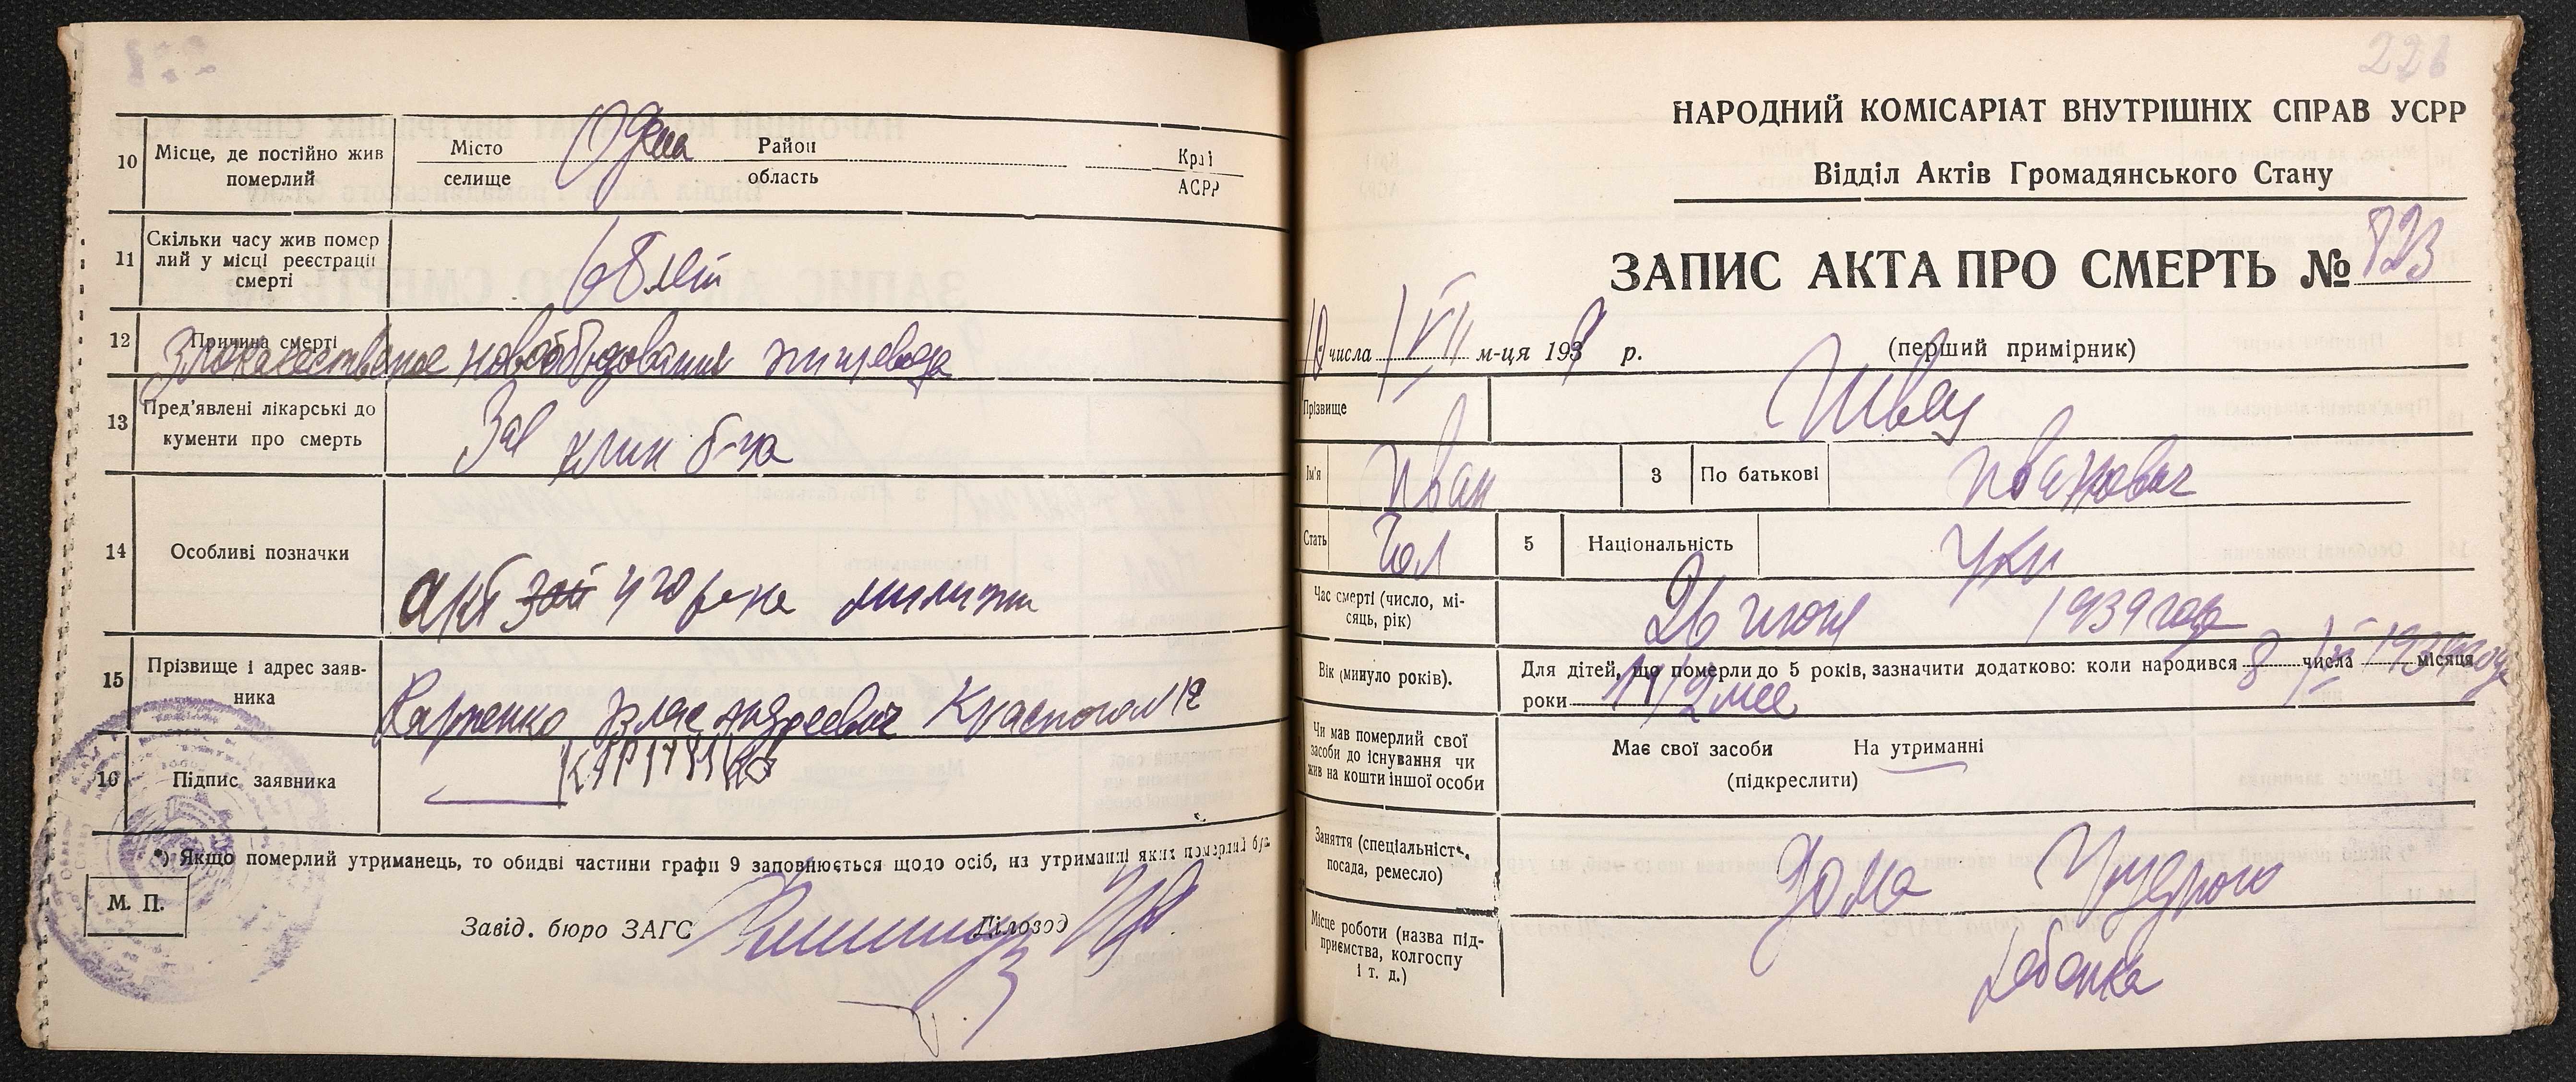 10 Місце, де постійно жив померлий
Місто селище Одеса Район область Краї АСРР
11 Скільки часу жив помер лий у місці реєстрації смерті
лет
12 Причина смерті
Злокачественое новообразование пищевода
13 Пред'явлені лікарські до кументи про смерть
клин б-ца
14 Особливі позначки
акт 4го р-на милиции
15 Прізвище і адрес заяв-ника
16 Підпис заявника
*) Якщо померлий утриманець, то обидві частини графи 9 заповнюється щодо осіб, на утриманні яких померлий був.
М. П.
Завід. бюро ЗАГС Діловод
НАРОДНИЙ КОМІСАРІАТ ВНУТРІШНІХ СПРАВ УСРР
Відділ Актів Громадянського Стану
ЗАПИС АКТА ПРО СМЕРТЬ № 823
числа VII м-ця 1939 р. (перший примірник)
Прізвище Швец
Ім'я Иван 3 По батькові Иванович
Стать Чол 5 Національність Укр
Час смерті (число, мі-сяць, рік) 26 июня 1939 года
Вік (минуло років).
Для дітей, що померли до 5 років, зазначити додатково: коли народився 8 числа місяця 1939 года
роки
Чи мав померлий свої засоби до існування чи жив на кошти іншої особи
Має свої засоби На утриманні
(підкреслити)
Заняття (спеціальність, посада, ремесло)
Місце роботи (назва під-приємства, колгоспу і т. д.)
Дома Грудного
ребенка